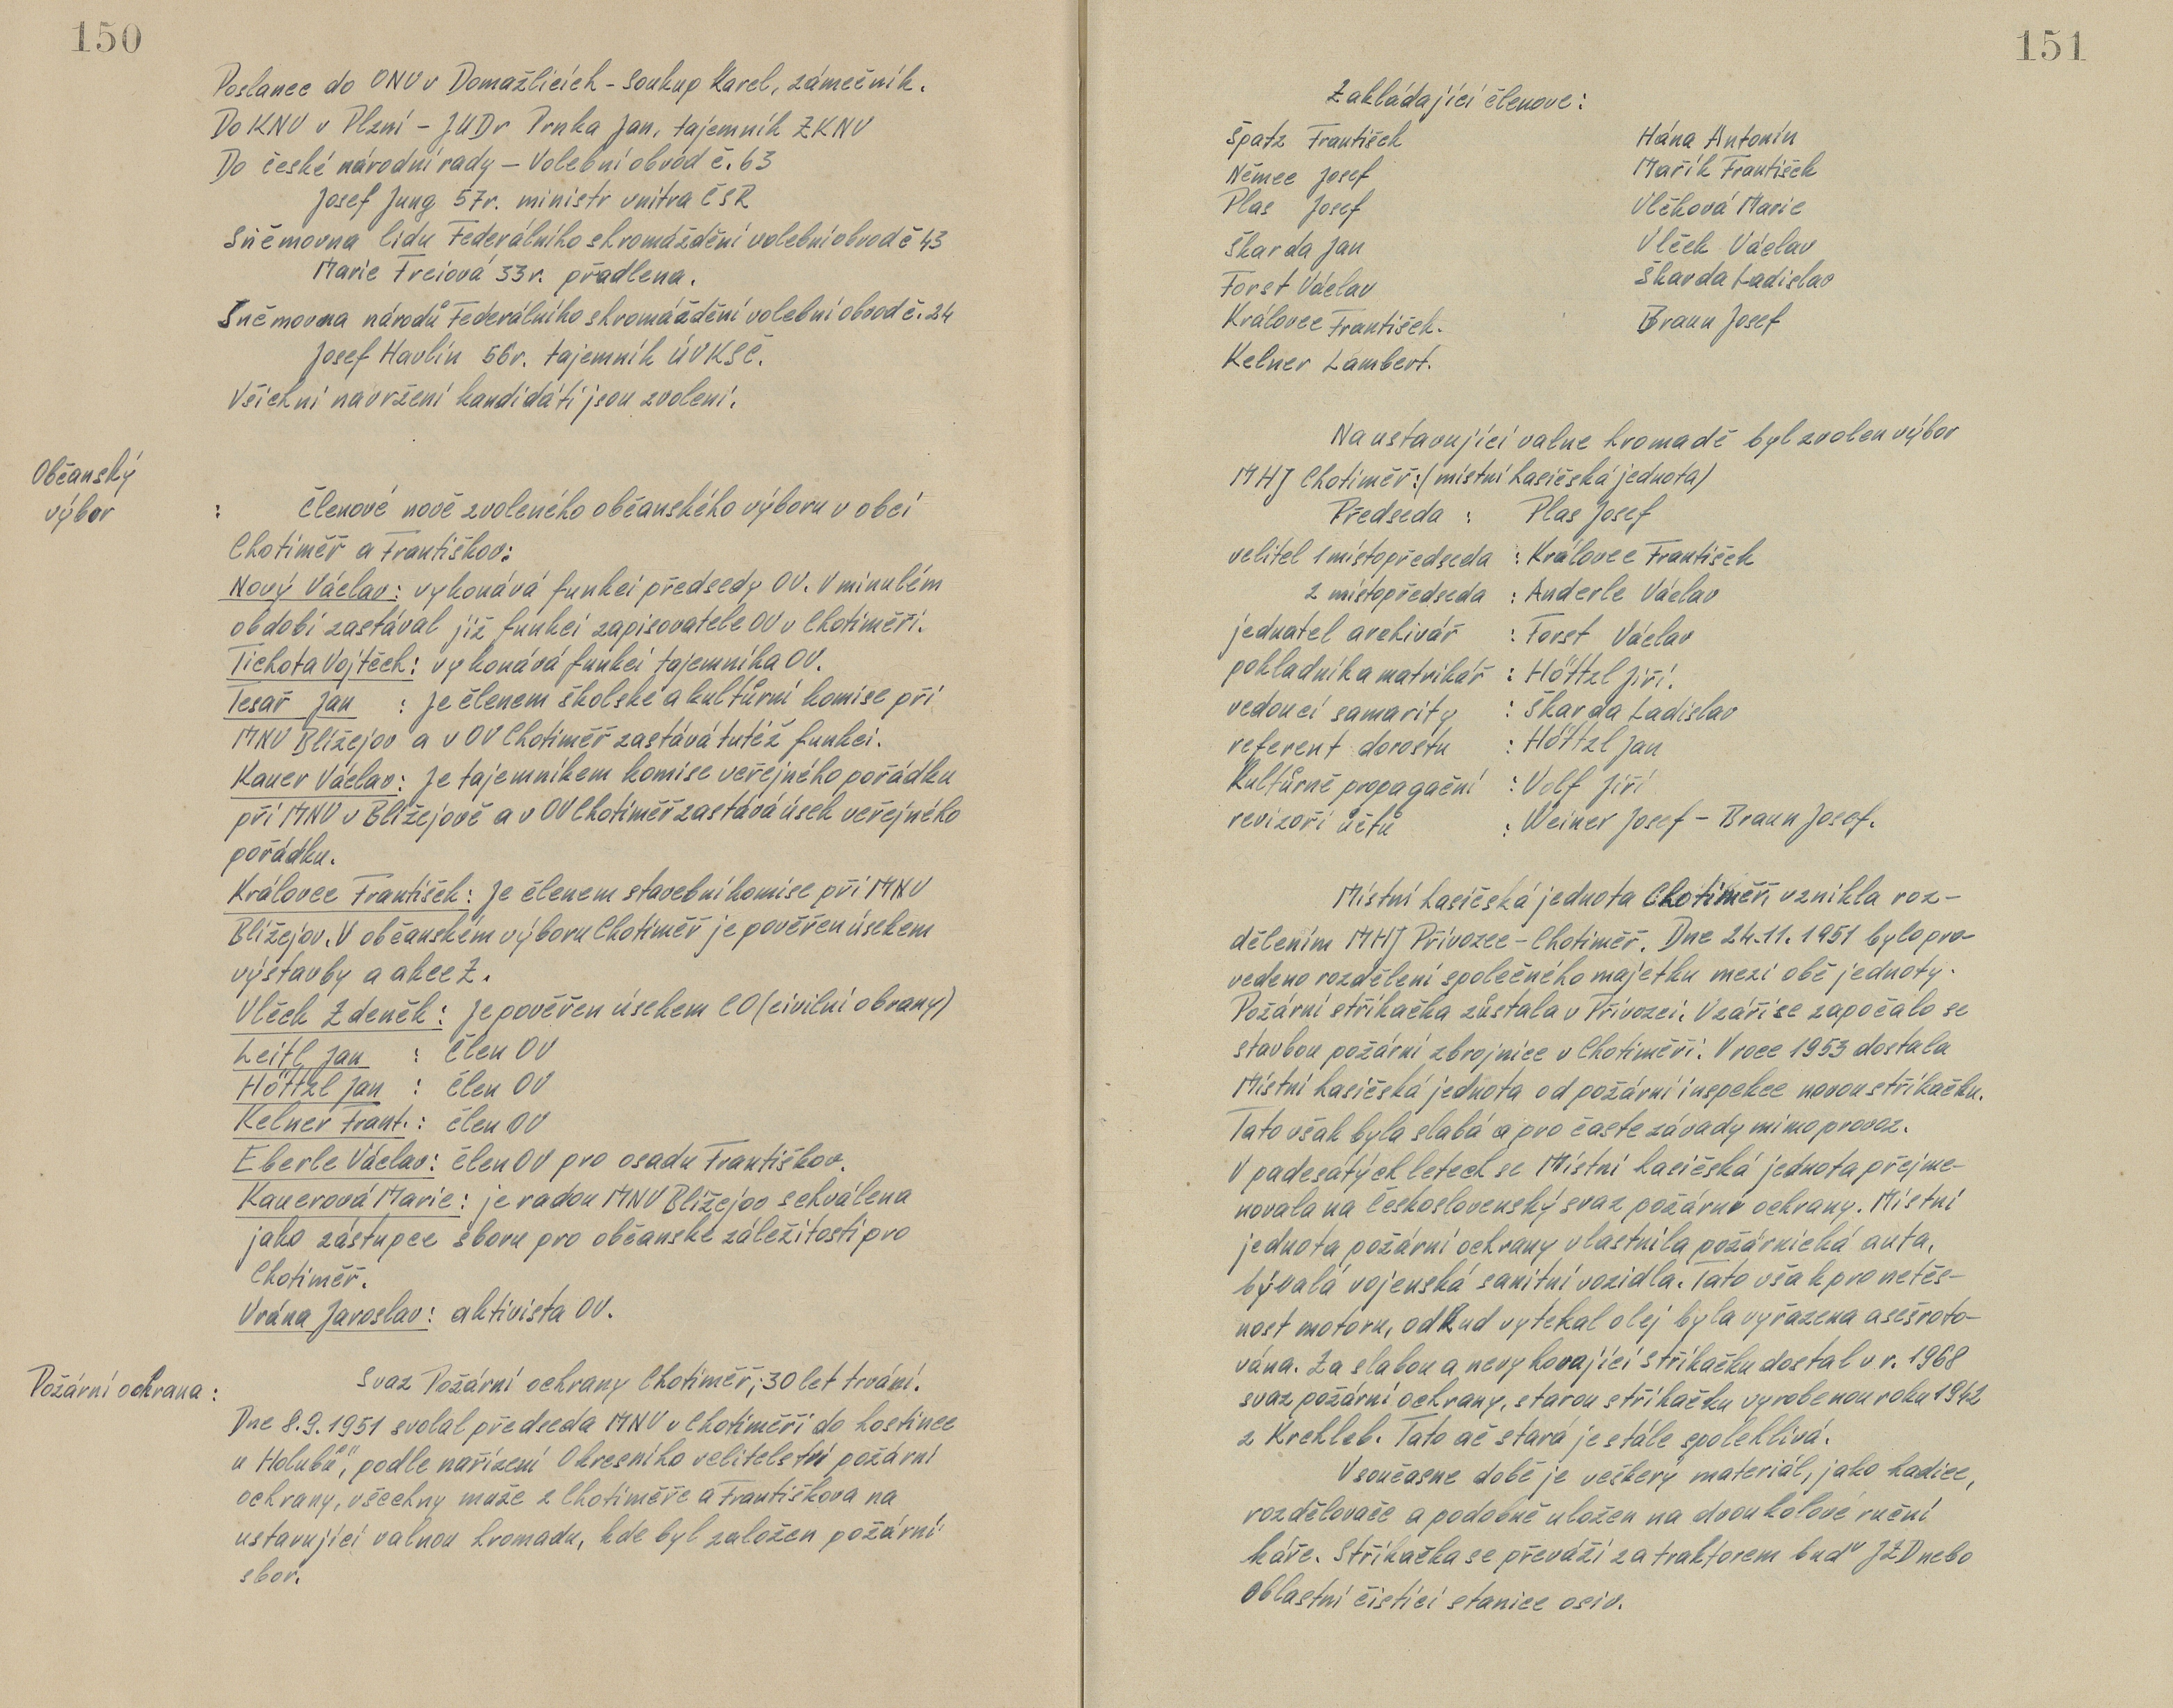 150
Poslanec do ONV v Domažlicích - Soukup Karel, zámečník.
Do KNV v Plzni - JUDr Prnka Jan, tajemník ZKNV
Do české národní rady - Volební obvod č. 63
Josef Jung 57r. ministr vnitra ČSR
Sněmovna lidu Federálního shromáždění volební obvod č 43
Marie Freiová 33r. přadlena.
Sněmovna národů Federálního shromáždění volební obvod č. 24
Josef Havlín 56r. tajemník ÚVKSČ.
Všichni navržení kandidáti jsou zvoleni.
Občanský
výbor :
Členové nově zvoleného občanského výboru v obci
Chotiměř a Františkov:
Nový Václav: vykonává funkci předsedy OV. V minulém
období zastával již funkci zapisovatele OV v Chotiměři.
Tichota Vojtěch: vykonává funkci tajemníka OV.
Tesař Jan : Je členem školské a kultůrní komise při
MNV Blížejov a v OV Chotiměř zastává tutéž funkci.
Kauer Václav: Je tajemníkem komise veřejného pořádku
při MNV v Blížejově a v OV Chotiměř zastává úsek veřejného
pořádku.
Královec František: Je členem stavební komise při MNV
Blížejov. V občanském výboru Chotiměř je pověřen úsekem
výstavby a akce Z.
Vlček Zdeněk: Je pověřen úsekem CO (civilní obrany)
Leitl Jan : Člen OV
Höttzl Jan : člen OV
Kelner Frant. : člen OV
Eberle Václav: člen OV pro osadu Františkov.
Kauerová Marie: je radou MNV Blížejov schválena
jako zástupce sboru pro občanské záležitosti pro
Chotiměř.
Vrána Jaroslav: aktivista OV.
Požární ochrana :
Svaz Požární ochrany Chotiměř; 30 let trvání.
Dne 8.9.1951 svolal předseda MNV v Chotiměři do hostince
u Holubů", podle nařízení Okresního velitelství požární
ochrany, všechny muže z Chotiměře a Františkova na
ustavující valnou hromadu, kde byl založen požární
sbor.
151
Zakládající členove:
Špatz František Hána Antonín
Němec Josef Mařík František
Plas Josef Vlčková Marie
Škarda Jan Vlček Václav
Forst Václav Škarda Ladislav
Královec František. Braun Josef
Kelner Lambert.
Na ustavující valne hromadě byl zvolen výbor
MHJ Chotiměř: (místní hasičská jednota)
Předseda : Plas Josef
velitel 1 místopředseda : Královec František
2 místopředseda : Anderle Václav
jednatel archivář : Forst Václav
pokladník a matrikář : Höttzl Jiří.
vedoucí samarity : Škarda Ladislav
referent dorostu : Höttzl Jan
Kultůrně propagační : Volf Jiří
revizoři účtů : Weiner Josef - Braun Josef.
Místní hasičská jednota Chotiměři vznikla roz-
dělením MHJ Přívozec - Chotiměř. Dne 24.11.1951 bylo pro-
vedeno rozdělení společného majetku mezi obě jednoty.
Požární stříkačka zůstala v Přívozci. V září se započalo se
stavbou požární zbrojnice v Chotiměři. V roce 1953 dostala
Místní hasičská jednota od požární inspekce novou stříkačku.
Tato však byla slabá a pro časte závady mimo provoz.
V padesátých letech se Místní hasičská jednota přejme-
novala na Československý svaz požární ochrany. Místní
jednota požární ochrany vlastnila požárnická auta,
bývalá vojenská sanitní vozidla. Tato však pro netěs-
nost motoru, odkud vytékal olej byla vyřazena a sešroto-
vána. Za slabou a nevyhovující stříkačku dostal v r. 1968
svaz požární ochrany, starou stříkačku vyrobenou roku 1942
z Krchleb. Tato ač stará je stále spolehlivá.
V současne době je veškerý materiál, jako hadice,
rozdělovače a podobně uložen na dvoukolové ruční
káře. Stříkačka se převáží za traktorem buď JZD nebo
oblastní čistící stanice osiv.